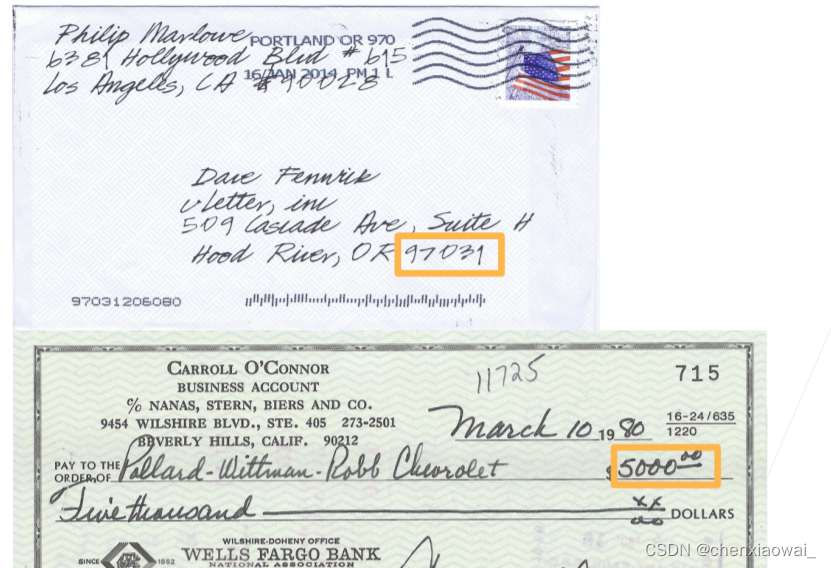 Philip Marlowe
PORTLAND OR 970
6381 Hollywood Blvd # 615
16 JAN 2014 PM 1 L
Los Angeles, CA 90028
Dave Fennick
vLetter, inc
509 Cascade Ave, Suite H
Hood River, OR 97031
97031206080
CARROLL O'CONNOR
BUSINESS ACCOUNT
% NANAS, STERN, BIERS AND CO.
9454 WILSHIRE BLVD., STE. 405 273-2501
BEVERLY HILLS, CALIF. 90212
11725
715
March 10 1980
16-24/635
1220
PAY TO THE
ORDER OF Pollard-Wittman-Robb Chevrolet $5000 00
Five thousand xx/00 DOLLARS
WILSHIRE-DOHENY OFFICE
SINCE 1852 WELLS FARGO BANK
NATIONAL ASSOCIATION
CSDN @chenxiaowai_